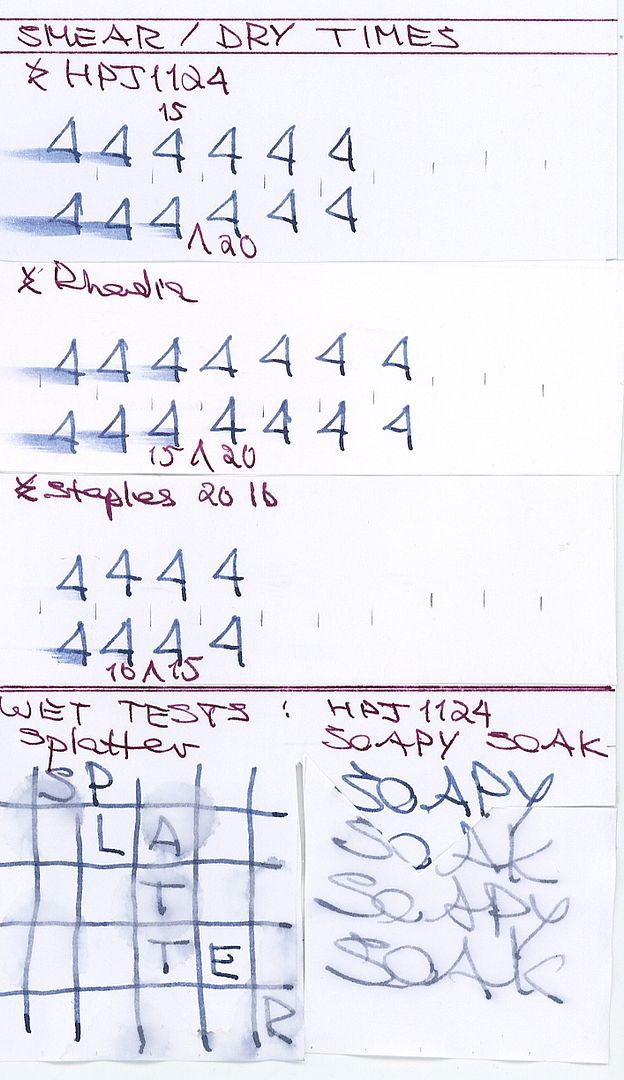 SMEAR / DRY TIMES
HPJ1124
15
4 4 4 4 4 4
4 4 4 4 4 4
^ 20
Rhodia
4 4 4 4 4 4 4
4 4 4 4 4 4 4
15 ^ 20
Staples 20 lb
4 4 4 4
4 4 4 4
10 ^ 15
WET TESTS : HPJ1124
Splatter
SOAPY SOAK
SP
L A
T
T E
R
SOAPY
SOAK
SOAPY
SOAK